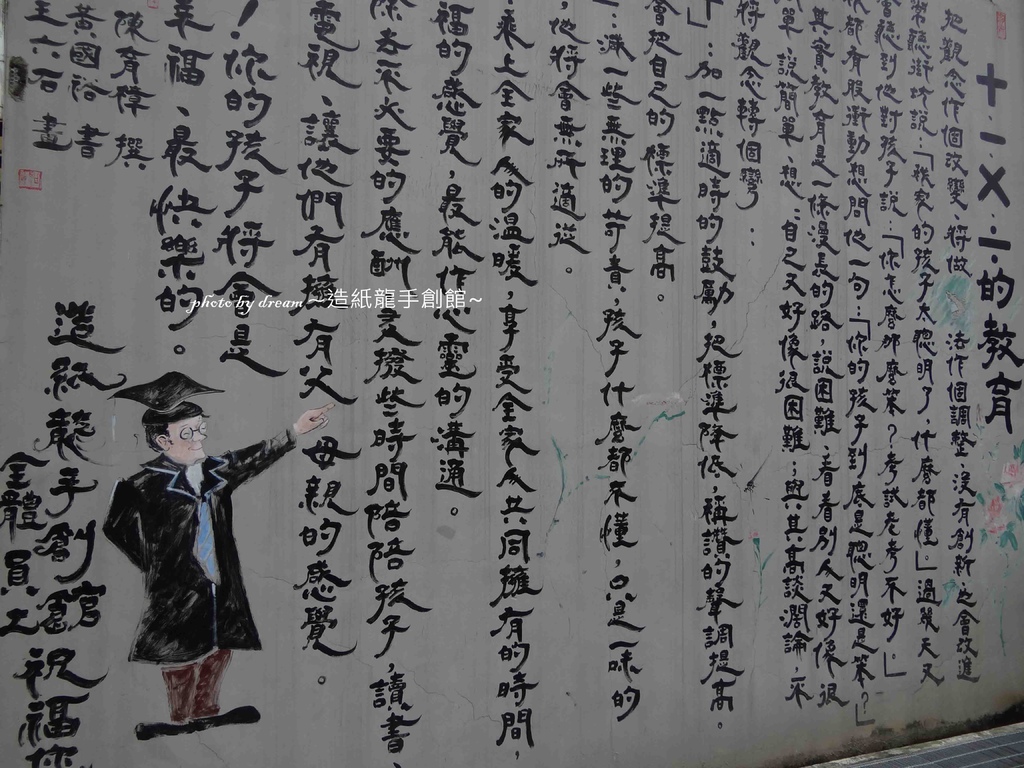 十一ㄨ÷的教育
把觀念作個改變、將做 法作個調整、沒有創新、也會改進
常聽街坊說：「我家的孩子太聰明了，什麼都懂。」過幾天又
會聽到他對孩子說：「你怎麼那麼笨？考試老考不好。」
我都有股衝動想問他一句：「你的孩子到底是聰明還是笨？」
其實教育是一條漫長的路，說困難，看看別人又好像很
簡單；說簡單、想想自己又好像很困難；與其高談濶論，不
將觀念轉個彎：
「十」：加一點適時的鼓勵，把標準降低，稱讚的聲調提高。
會把自己的標準提高。
：減一些無理的苛責，孩子什麼都不懂，只是一味的
，他將會無所適從。
乘上全家人的溫暖，享受全家人共同擁有的時間，
福的感覺，最能作心靈的溝通。
除去不必要的應酬，多撥些時間陪陪孩子，讀書、
電視、讓他們有擁有父母親的感覺。
！你的孩子將會是
幸福、最快樂的。
陳育樟 撰
黃國裕 書
王六石 畫
造紙龍手創館 祝福您
全體員工
photo by dream ~造紙龍手創館~